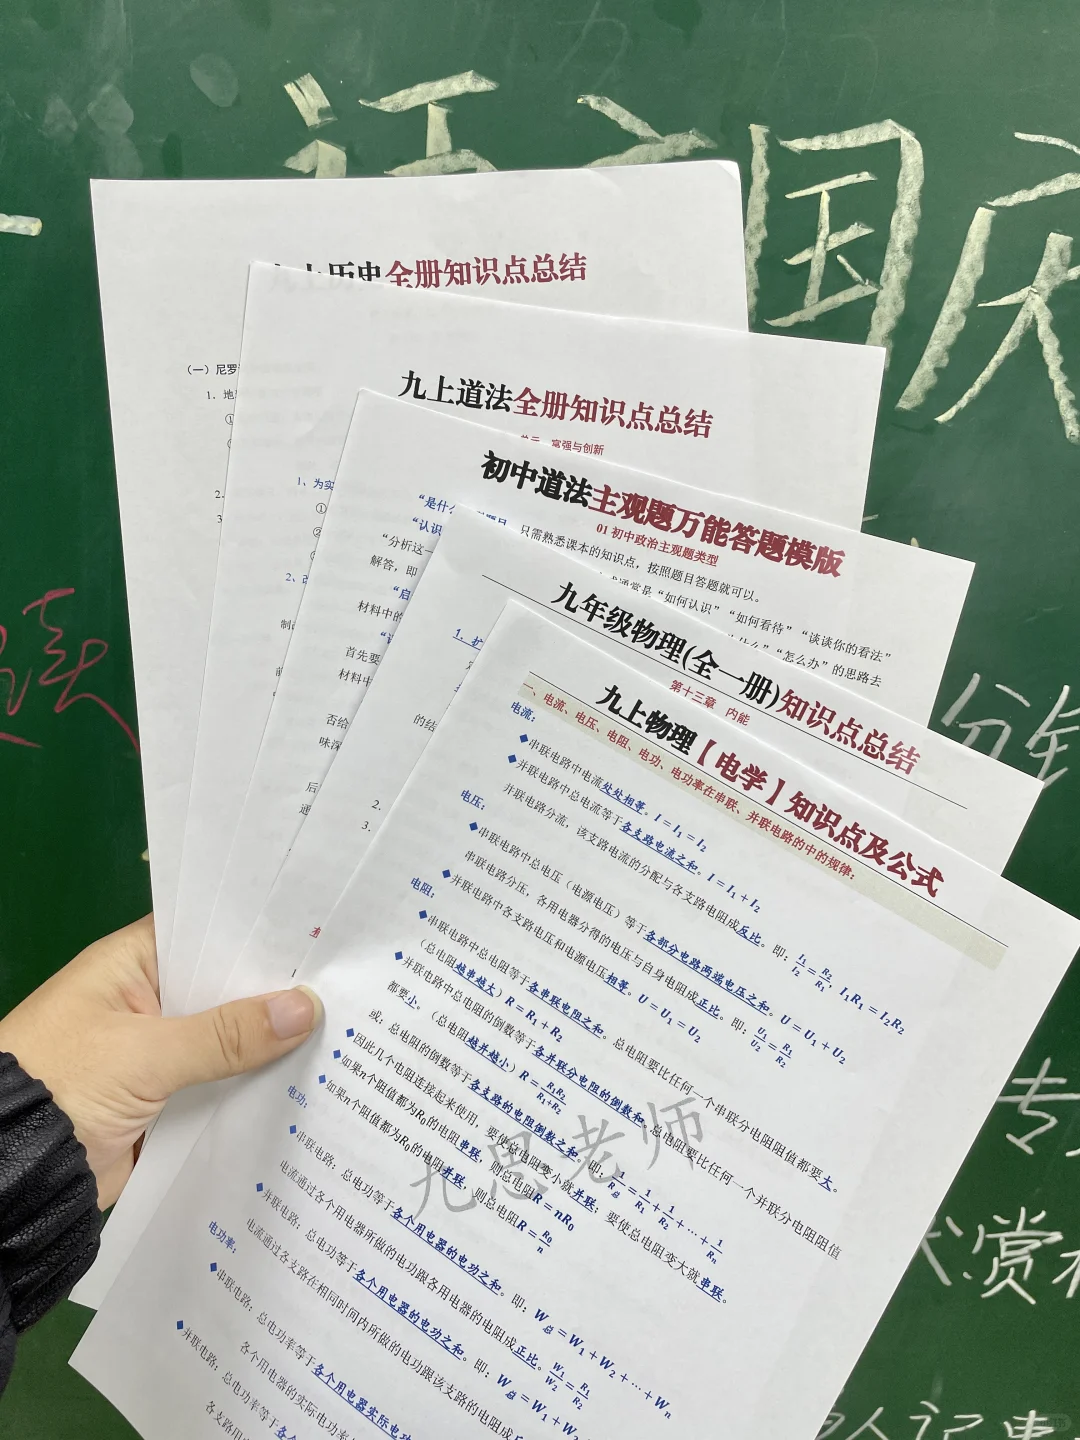 国庆
读
专
赏
人记事
历史全册知识点总结
（一）尼罗
1. 地
①
2.
3
九上道法全册知识点总结
富强与创新
1、为实
①
②
2、
制
初中道法主观题万能答题模版
01 初中政治主观题类型
“是什 只需熟悉课本的知识点，按照题目答题就可以。
“认识 通常是“如何认识”“如何看待”“谈谈你的看法”
“分析这一 “怎么办”的思路去
解答，即
“启
材料中的
首先要
材料中
否给
味深
后
通
九年级物理(全一册)知识点总结
第十三章 内能
1、扩
的结
2.
3.
九上物理【电学】知识点及公式
一、电流、电压、电阻、电功、电功率在串联、并联电路的中的规律：
电流：
◆串联电路中电流处处相等。I＝I₁＝I₂
◆并联电路中总电流等于各支路电流之和。I＝I₁＋I₂
并联电路分流，该支路电流的分配与各支路电阻成反比。即：I₁/I₂＝R₂/R₁，I₁R₁＝I₂R₂
电压：
◆串联电路中总电压（电源电压）等于各部分电路两端电压之和。U＝U₁＋U₂
串联电路分压，各用电器分得的电压与自身电阻成正比。即：U₁/U₂＝R₁/R₂
◆并联电路中各支路电压和电源电压相等。U＝U₁＝U₂
电阻：
◆串联电路中总电阻等于各串联电阻之和。总电阻要比任何一个串联分电阻阻值都要大。
（总电阻越串越大）R＝R₁＋R₂
◆并联电路中总电阻的倒数等于各并联分电阻的倒数和。总电阻要比任何一个并联分电阻阻值
都要小。（总电阻越并越小）R＝R₁R₂/R₁+R₂
或：总电阻的倒数等于各支路的电阻倒数之和，即：1/R总＝1/R₁＋1/R₂＋…＋1/Rₙ
◆因此几个电阻连接起来使用，要使总电阻变小就并联；要使总电阻变大就串联。
◆如果n个阻值都为R₀的电阻串联，则总电阻R＝nR₀
◆如果n个阻值都为R₀的电阻并联，则总电阻R＝R₀/n
电功：
◆串联电路：总电功等于各个用电器的电功之和。即：W总＝W₁＋W₂＋…＋Wₙ
电流通过各个用电器所做的电功跟各用电器的电阻成正比。W₁/W₂＝R₁/R₂
◆并联电路：总电功等于各个用电器的电功之和。即：W总＝W₁＋W₂
电流通过各支路在相同时间内所做的电功跟该支路的电阻成
电功率：
◆串联电路：总电功率等于各个用电器实际电功
各个用电器的实际电功率
◆并联电路：总电功率等于各个
各支路用
九思老师